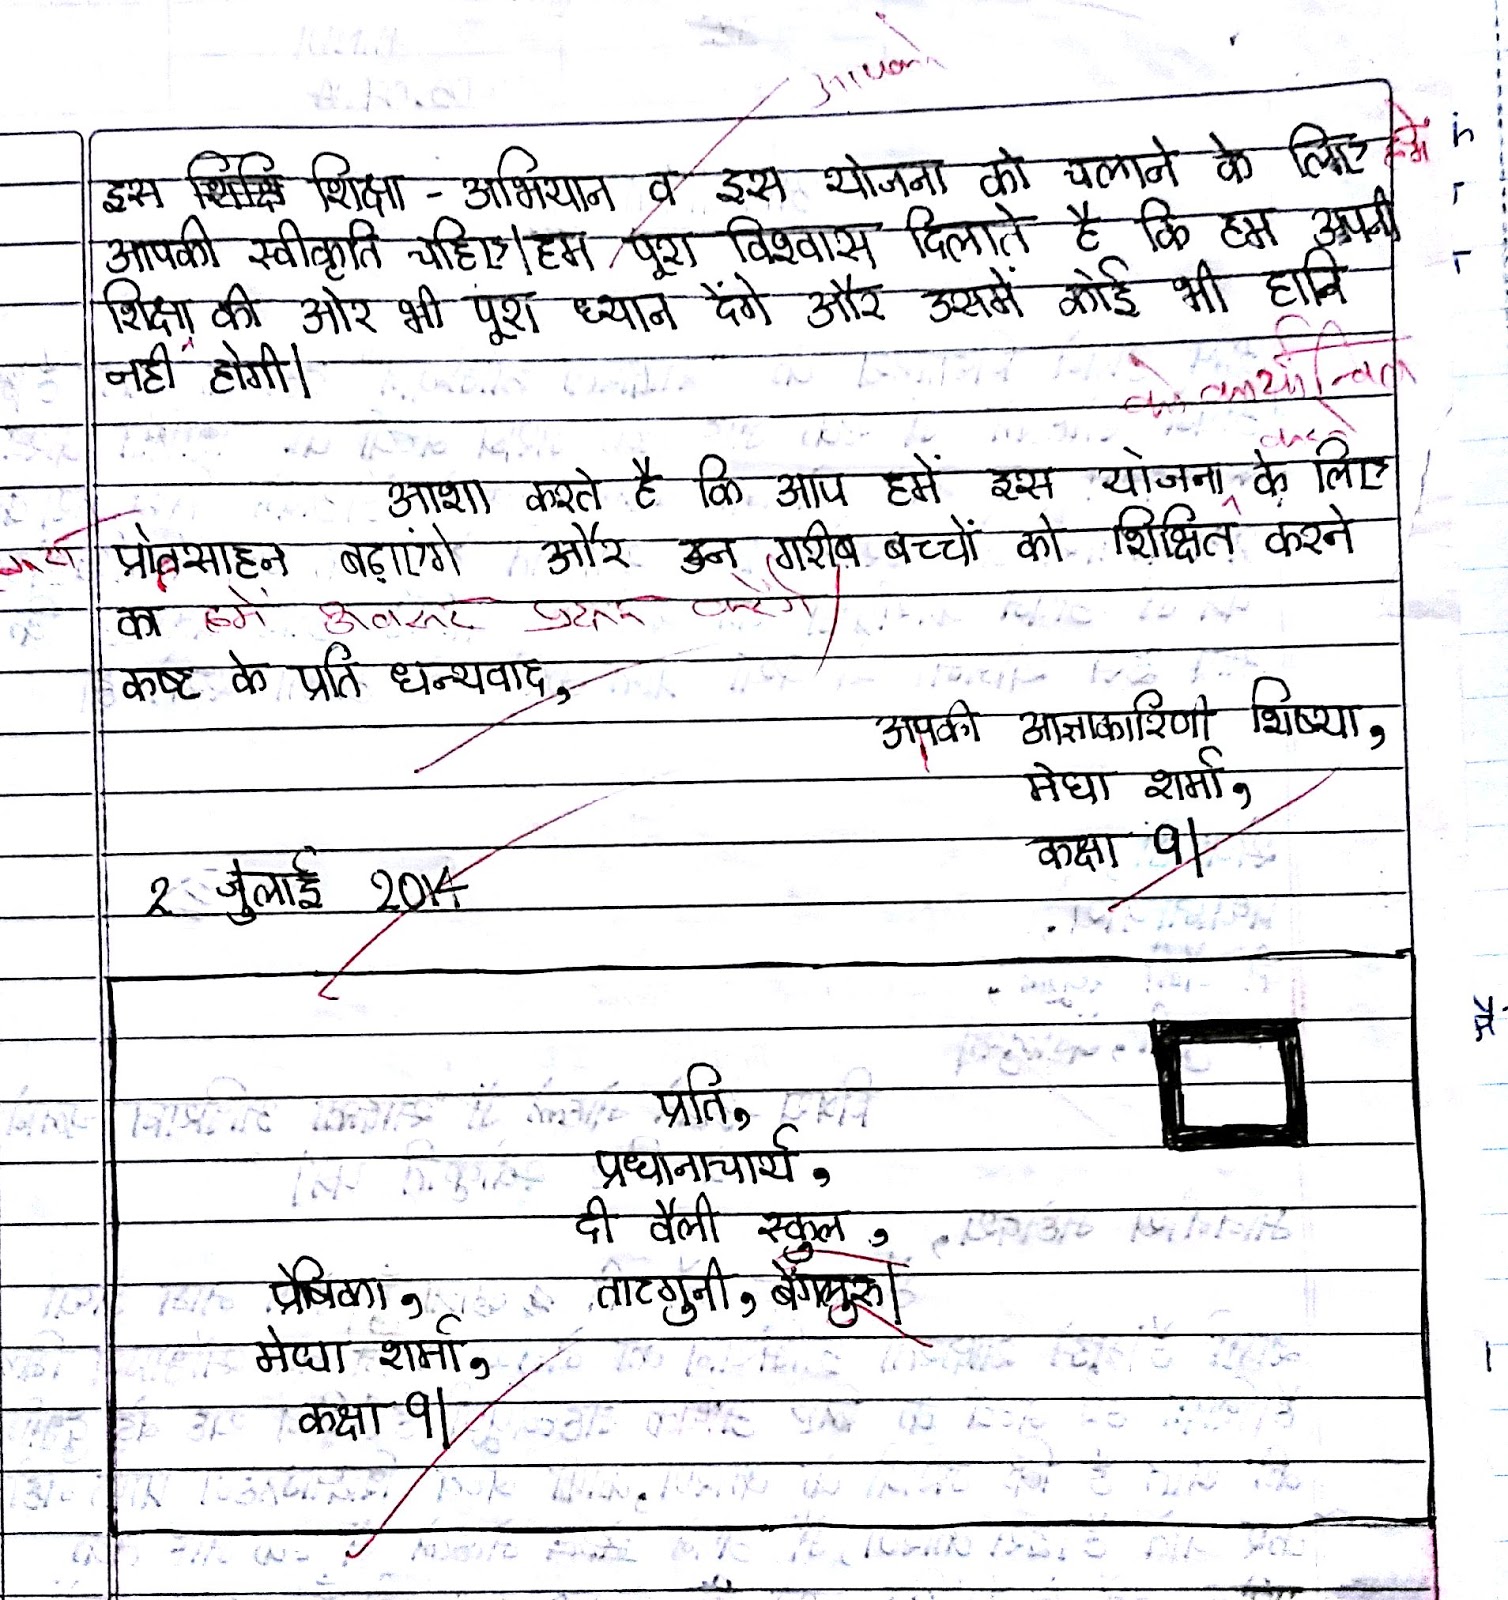 आपको
इस शिक्षा - अभियान व इस योजना को चलाने के लिए हमें
आपकी स्वीकृति चहिए। हम पूरा विश्वास दिलाते है कि हम अपनी
शिक्षा की ओर भी पूरा ध्यान देंगे और उसमें कोई भी हानि
नही होगी।
को कार्यान्वित
करने
आशा करते है कि आप हमें इस योजना के लिए
प्रोत्साहन बढ़ाएंगे और उन गरीब बच्चों को शिक्षित करने
का हमें अवसर प्रदान करेंगे
कष्ट के प्रति धन्यवाद,
अपकी आज्ञाकारिणी शिष्या,
मेघा शर्मा,
कक्षा 9।
2 जुलाई 2014
प्रति,
प्रधानाचार्य,
दी वैली स्कुल,
प्रेषिका, ताटगुनी, बेंगलुरु।
मेघा शर्मा,
कक्षा 9।